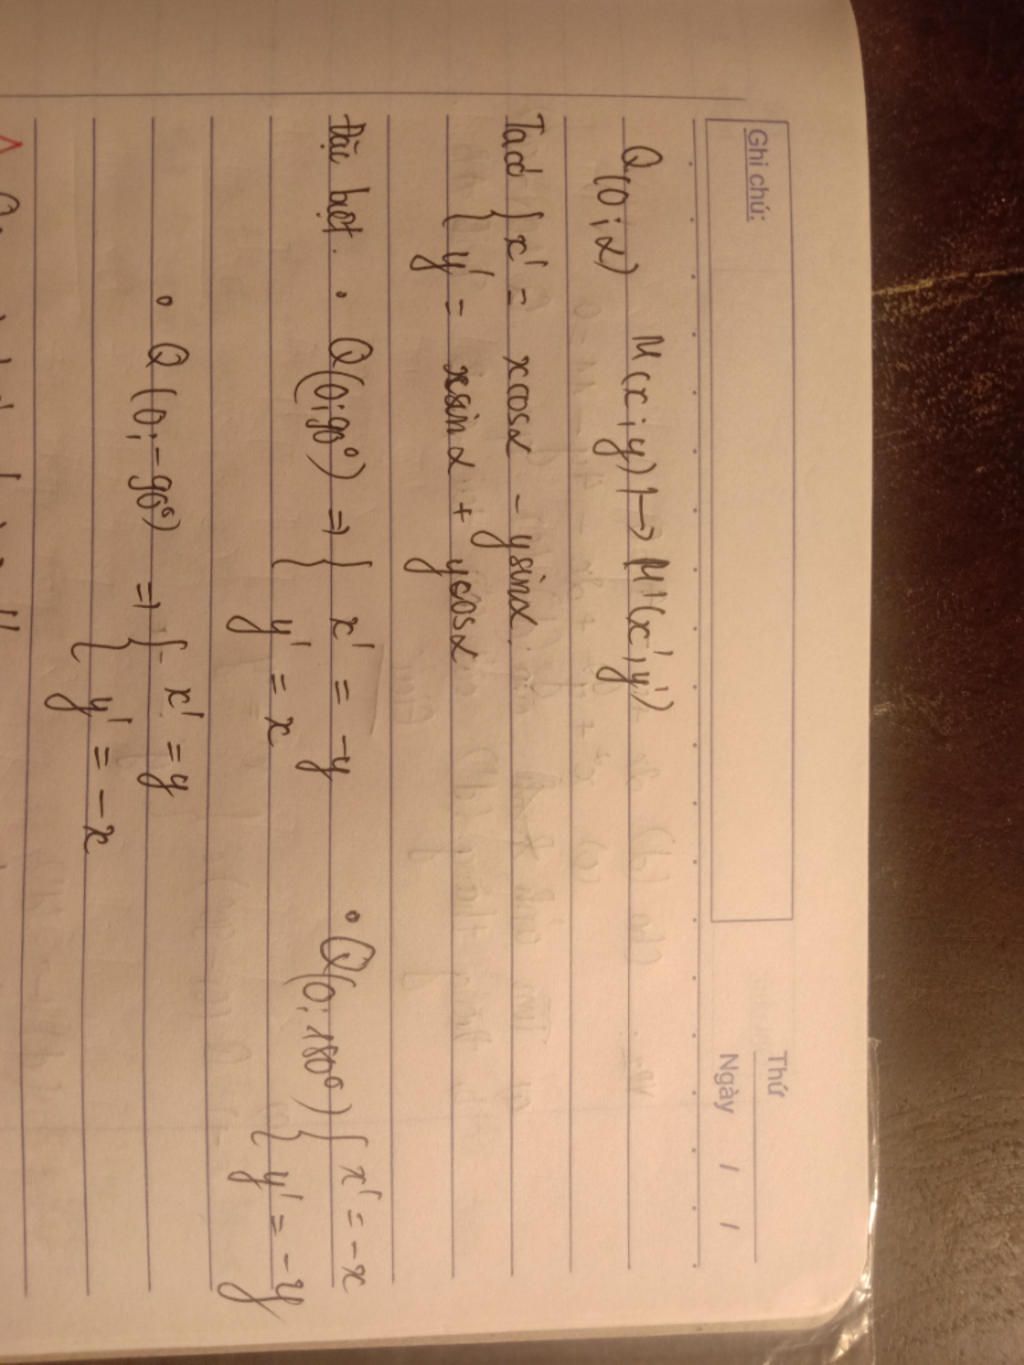 Ghi chú:
Thứ
Ngày / /
Q(O;α) M(x;y) ↦ M'(x';y')
Ta có { x' = xcosα - ysinα.
{ y' = xsinα + ycosα
Đặc biệt. • Q(O;90°) ⇒ { x' = -y
{ y' = x
• Q(O;180°) { x' = -x
{ y' = -y
• Q(O;-90°) ⇒ { x' = y
{ y' = -x